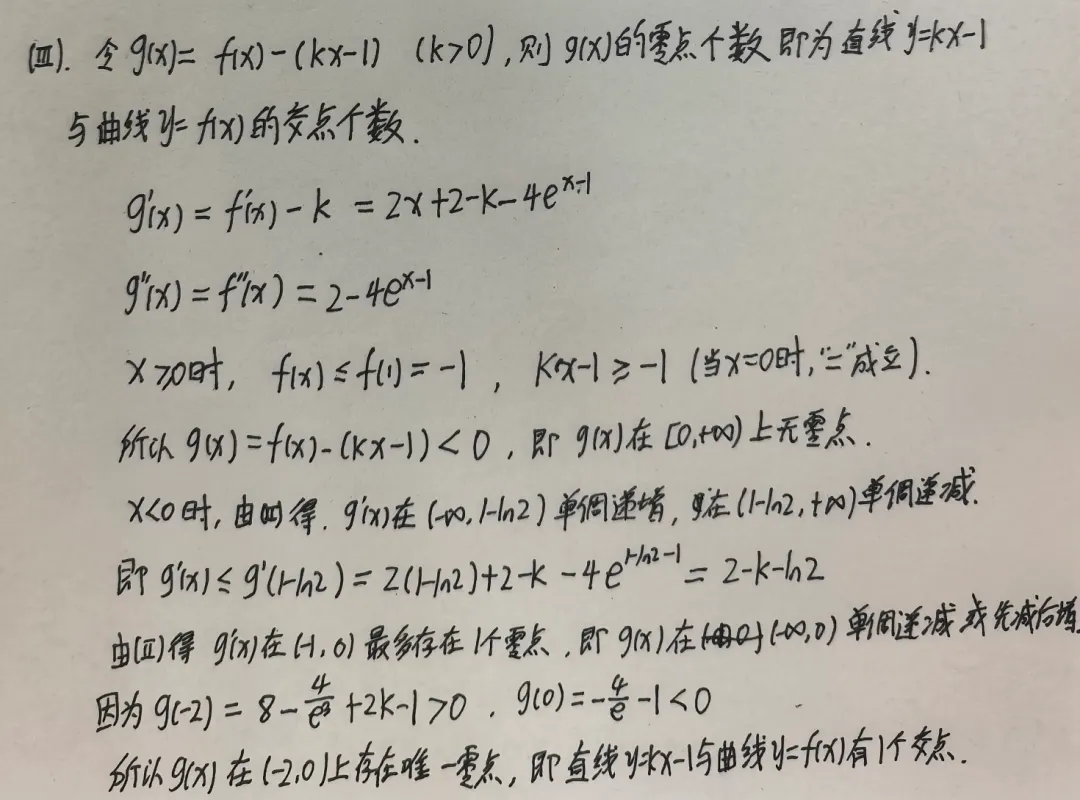 (Ⅲ). 令g(x)= f(x)-(kx-1) (k>0), 则 g(x)的零点个数即为直线y=kx-1
与曲线y=f(x)的交点个数.
g'(x) = f'(x) - k = 2x+2-k-4e^{x-1}
g''(x) = f''(x) = 2-4e^{x-1}
x≥0时, f(x)≤f(1)=-1, kx-1≥-1 (当x=0时,"="成立).
所以 g(x)=f(x)-(kx-1)<0, 即 g(x)在[0,+∞)上无零点.
x<0时, 由(Ⅱ)得. g'(x)在(-∞,1-ln2)单调递增, 在(1-ln2,+∞)单调递减.
即 g'(x)≤g'(1-ln2)=2(1-ln2)+2-k-4e^{1-ln2-1}=2-k-ln2
由(Ⅱ)得 g'(x)在(-1,0)最多存在1个零点, 即 g(x)在(-∞,0)单调递减或先减后增
因为 g(-2)=8-\frac{4}{e^3}+2k-1>0. g(0)=-\frac{4}{e}-1<0
所以g(x)在(-2,0)上存在唯一零点, 即直线y=kx-1与曲线y=f(x)有1个交点.